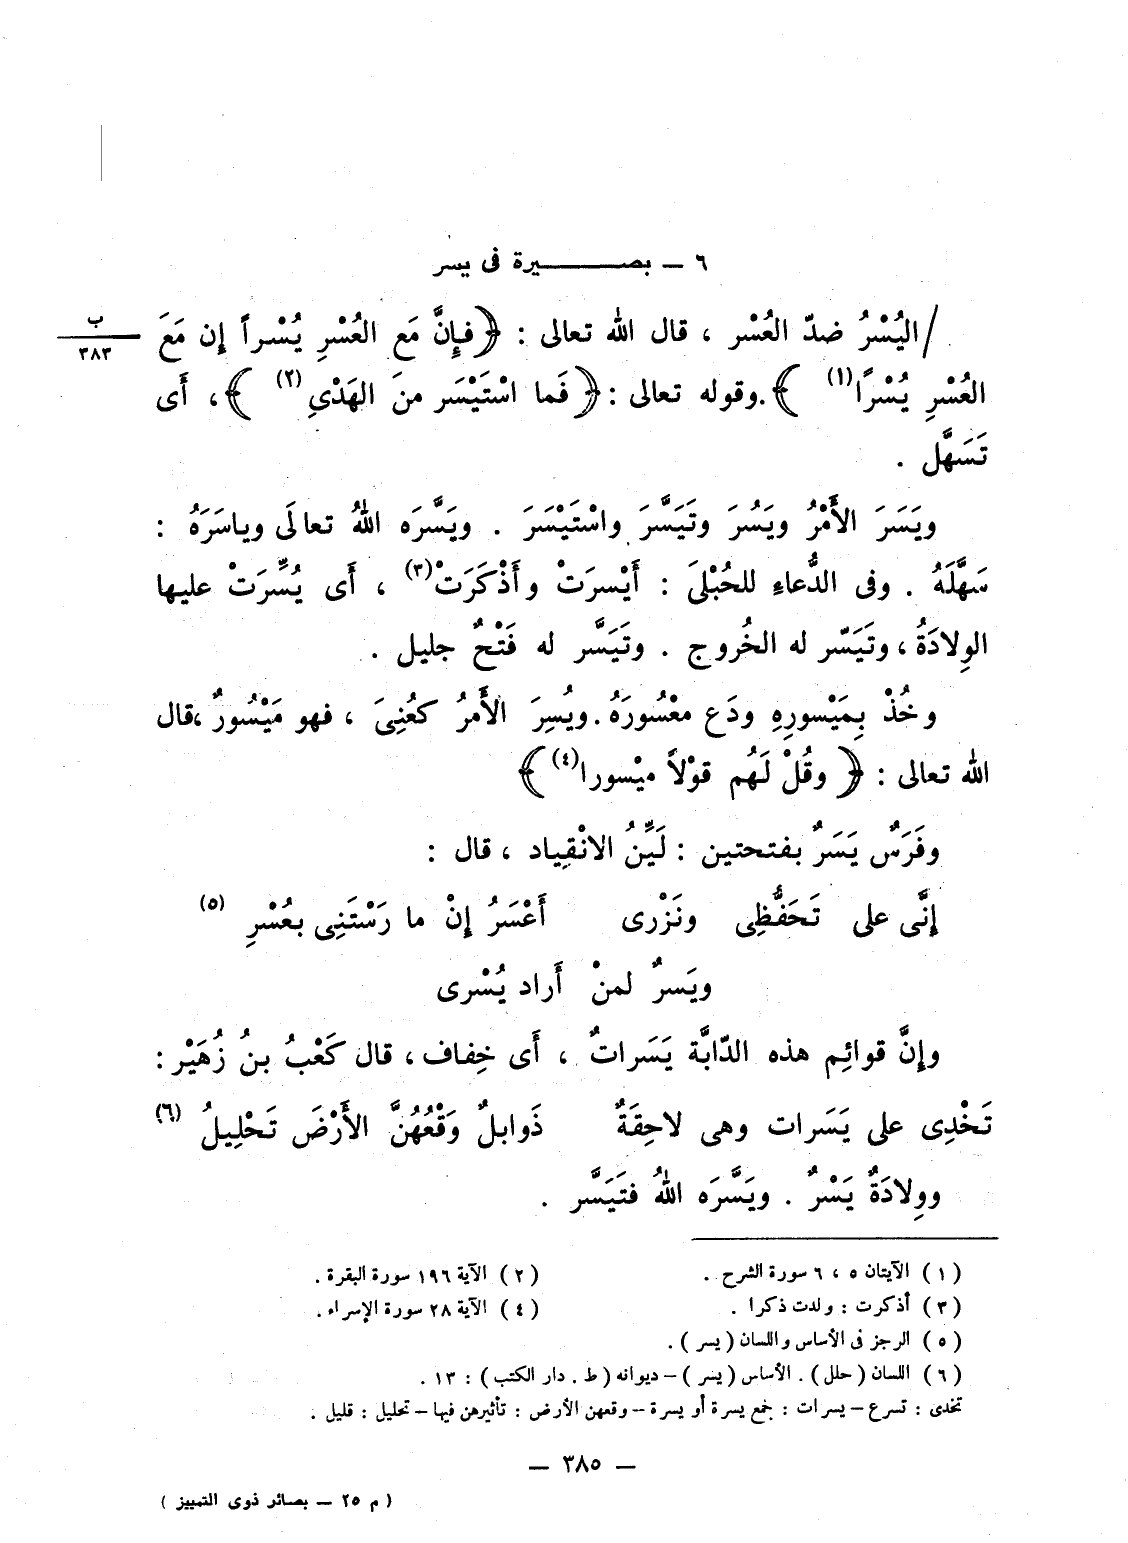 ٦ — بصـــــــيرة فى يسر
/اليُسْرُ ضدّ العُسْر ، قال الله تعالى : ﴿ فإِنَّ مَع العُسْرِ يُسْراً إِن مَعَ
ب
٣٨٣
العُسْرِ يُسْرًا(١) ﴾.وقوله تعالى :﴿ فَما اسْتَيْسَر منَ الهَدْىِ(٢) ﴾، أَى
تَسَهَّل .
ويَسَرَ الأَمْرُ ويَسُرَ وتَيَسَّرَ واسْتَيْسَرَ . ويَسَّرَه اللهُ تعالَى وياسَرَهُ :
سَهَّلَهُ . وفى الدُّعاءِ للحُبْلىَ : أَيْسرَتْ وأَذْكَرَتْ(٣) ، أَى يُسِّرَتْ عليها
الوِلادَةُ ، وتَيَسّر له الخُروج . وتَيَسَّر له فَتْحٌ جليل .
وخُذْ بِمَيْسورِهِ ودَع معْسُورَهُ .ويسُِرَ الأَمرُ كعُنِىَ ، فهو مَيْسُورٌ ،قال
الله تعالى : ﴿ وقُلْ لَهُم قوْلاً ميْسورا(٤) ﴾
وفَرَسٌ يَسَرٌ بفتحتين : لَيِّنُ الانْقِياد ، قال :
إِنَّى على تَحَفُّظِى ونَزْرى أَعْسَرُ إِنْ ما رَسْتَنِى بعُسْرِ (٥)
ويَسرٌ لمنْ أَراد يُسْرى
وإِنَّ قوائِم هذه الدّابَّة يَسَراتٌ ، أَى خِفاف ، قال كَعْبُ بنُ زُهَيْر :
تَخْدِى على يَسَرات وهى لاحِقَةٌ ذَوابلٌ وَقْعُهُنَّ الأَرْضَ تَحْلِيلُ (٦)
ووِلادَةٌ يَسْرٌ . ويَسَّرَه اللهُ فتَيَسَّر .
(١) الآيتان ٥ ، ٦ سورة الشرح . (٢) الآية ١٩٦ سورة البقرة .
(٣) أذكرت : ولدت ذكرا . (٤) الآية ٢٨ سورة الإسراء .
(٥) الرجز فى الأساس واللسان (يسر ) .
(٦) اللسان (حلل) . الأساس (يسر ) – ديوانه (ط . دار الكتب) : ١٣ .
تخدى : تسرع – يسرات : جمع يسرة أو يسرة – وقعهن الأرض : تأثيرهن فيها – تحليل : قليل .
— ٣٨٥ —
( م ٢٥ — بصائر ذوى التمييز )